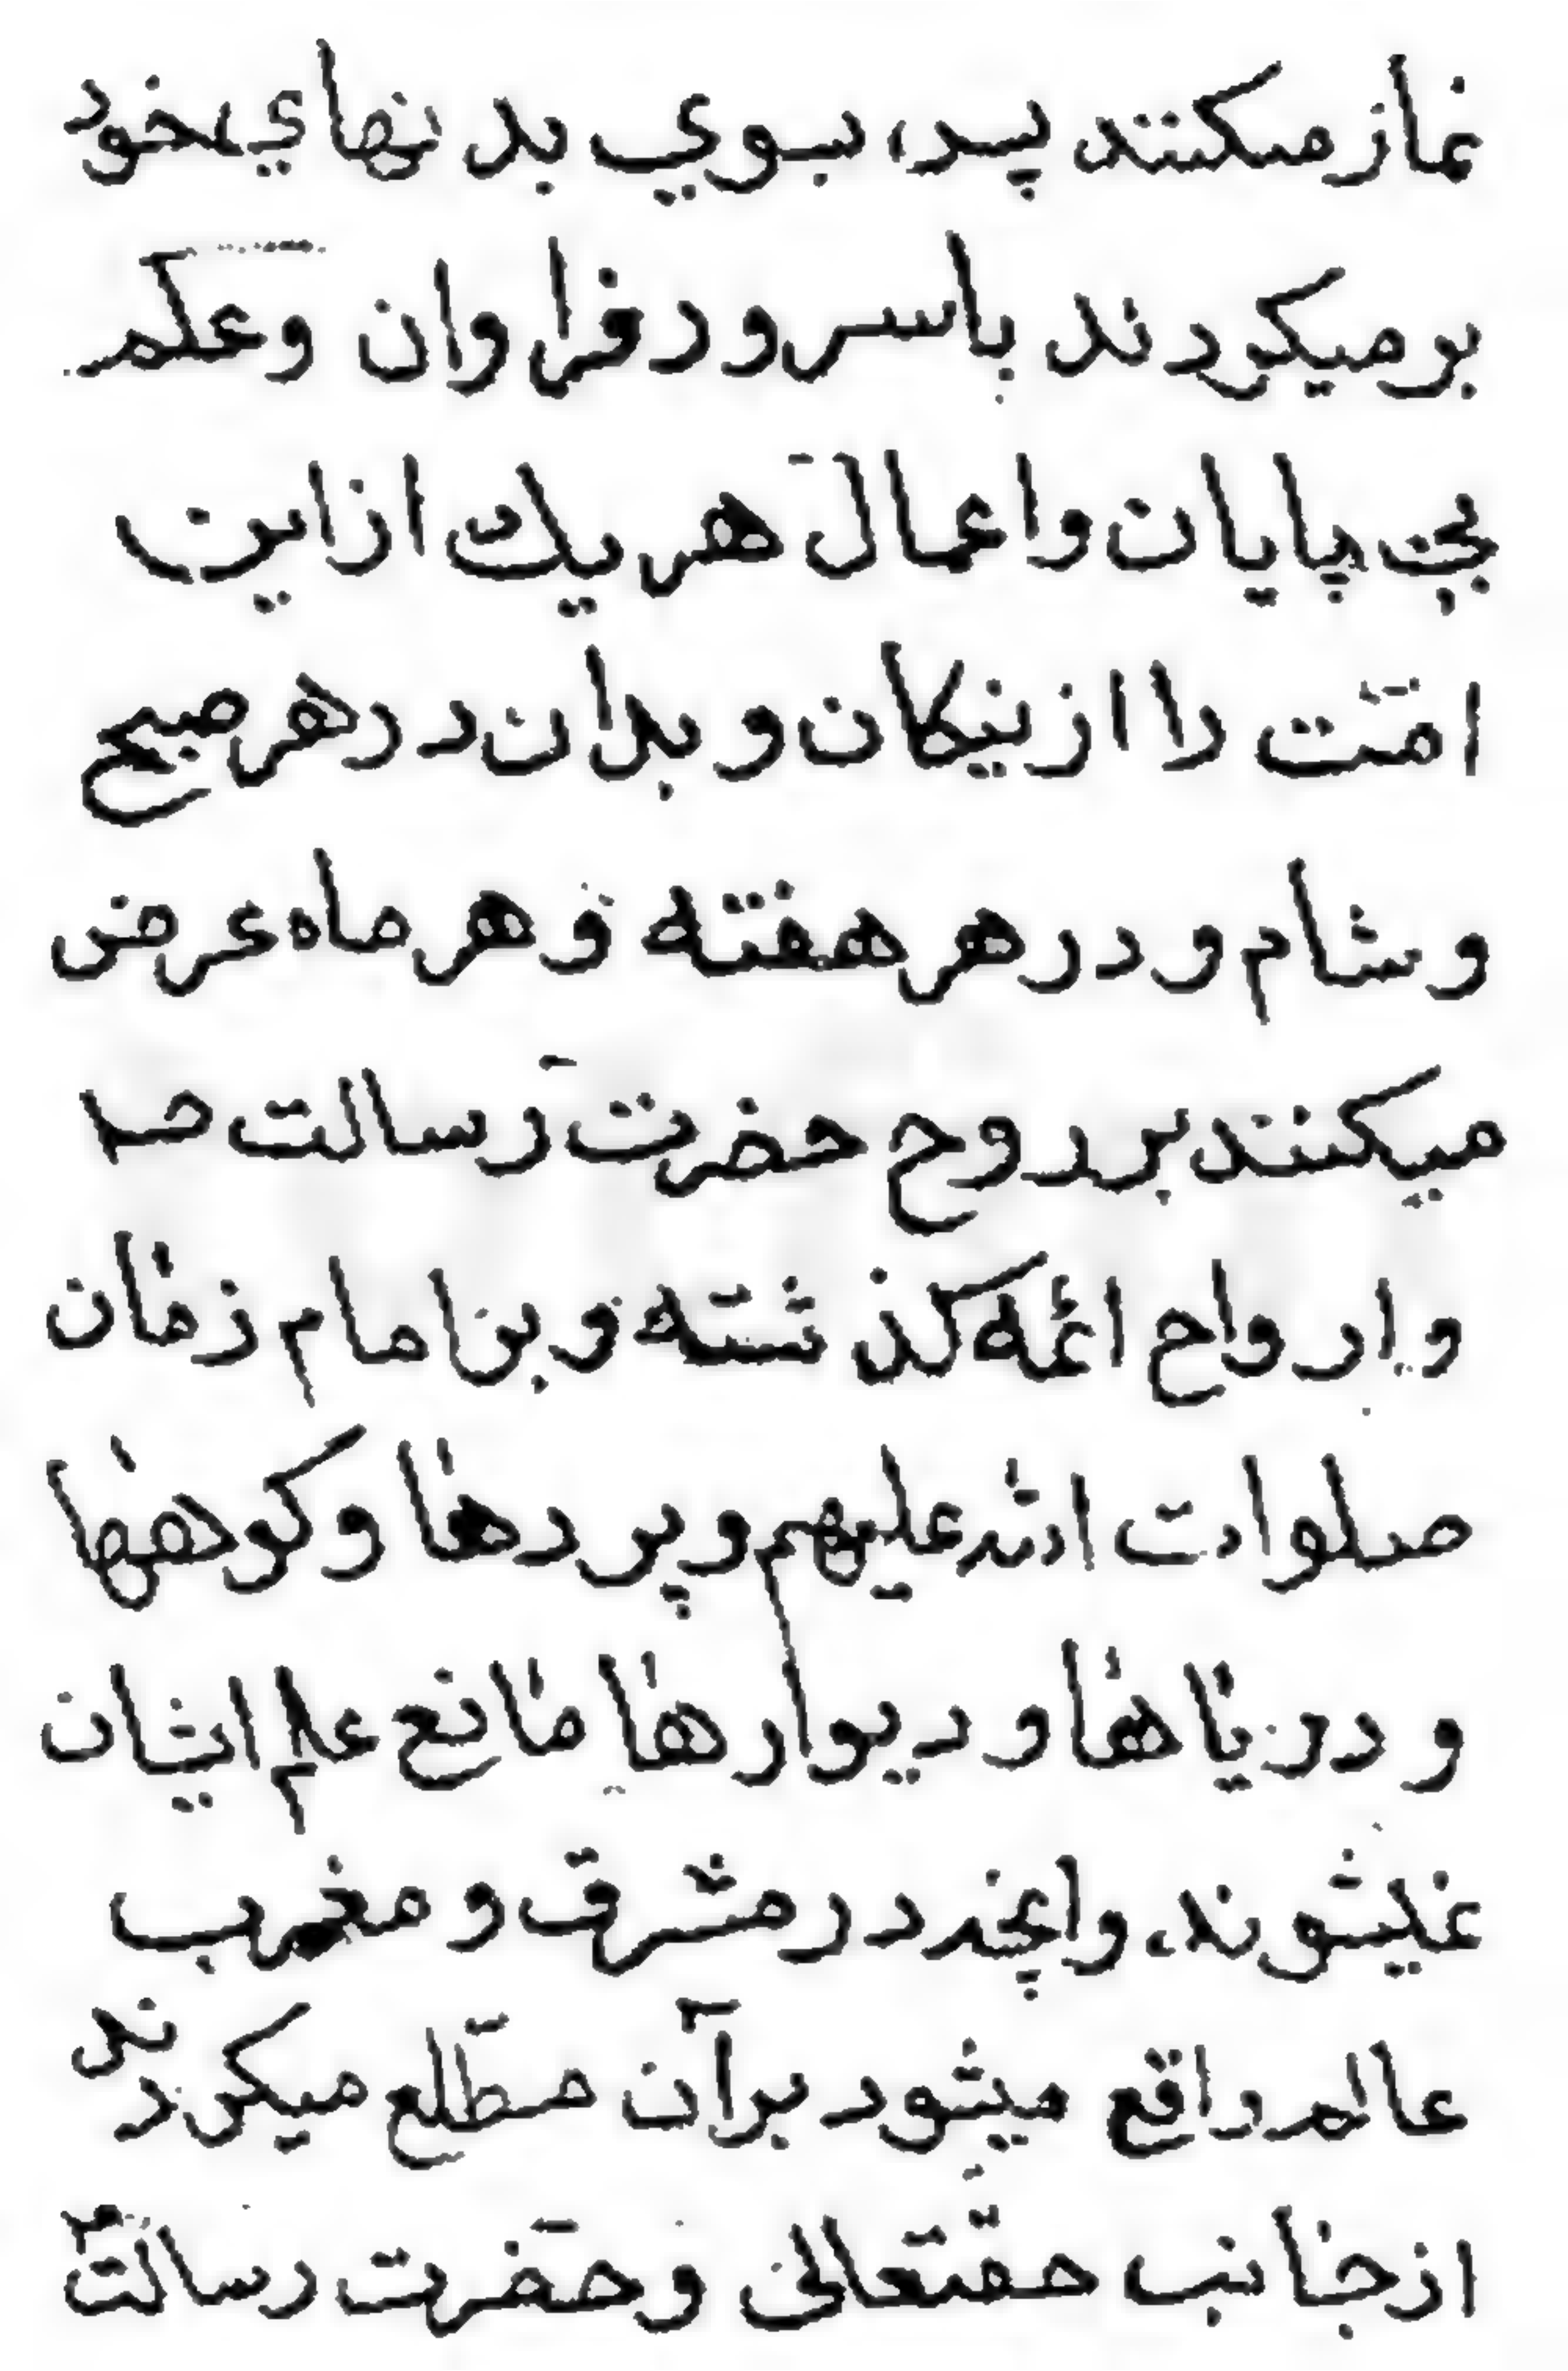 نماز میکنند پس بسوي بدنهاي خود
بر میکردند با سرور فراوان و علم
بی پایان و اعمال هر یك از این
امّت را از نیکان و بدان در هر صبح
و شام و در هر هفته و هر ماه عرض
میکنند بر روح حضرت رسالت ص
و ارواح ائمه کذشته و بر امام زمان
صلوات الله علیهم و پردها و کوهها
و دریاها و دیوارها مانع علم ایشان
نمیشوند، و انچه در مشرق و مغرب
عالم واقع میشود بر آن مطّلع میکردند
از جانب حقتعالی و حضرت رسالت